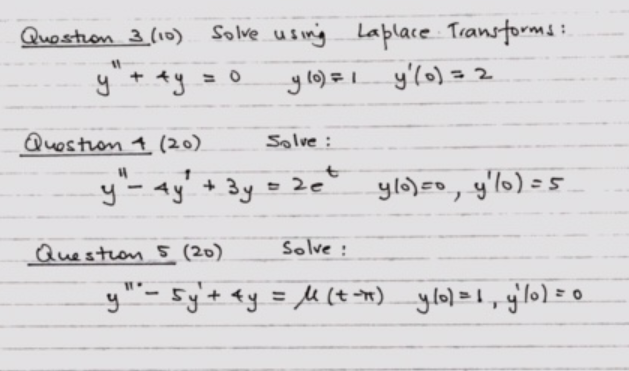 Question 3 (10) Solve using Laplace Transforms:
y" + 4y = 0 y(0) = 1 y'(0) = 2
Question 4 (20) Solve:
y" - 4y' + 3y = 2e^t y(0)=0, y'(0) = 5
Question 5 (20) Solve:
y" - 5y' + 4y = μ(t-π) y(0)=1, y'(0)=0